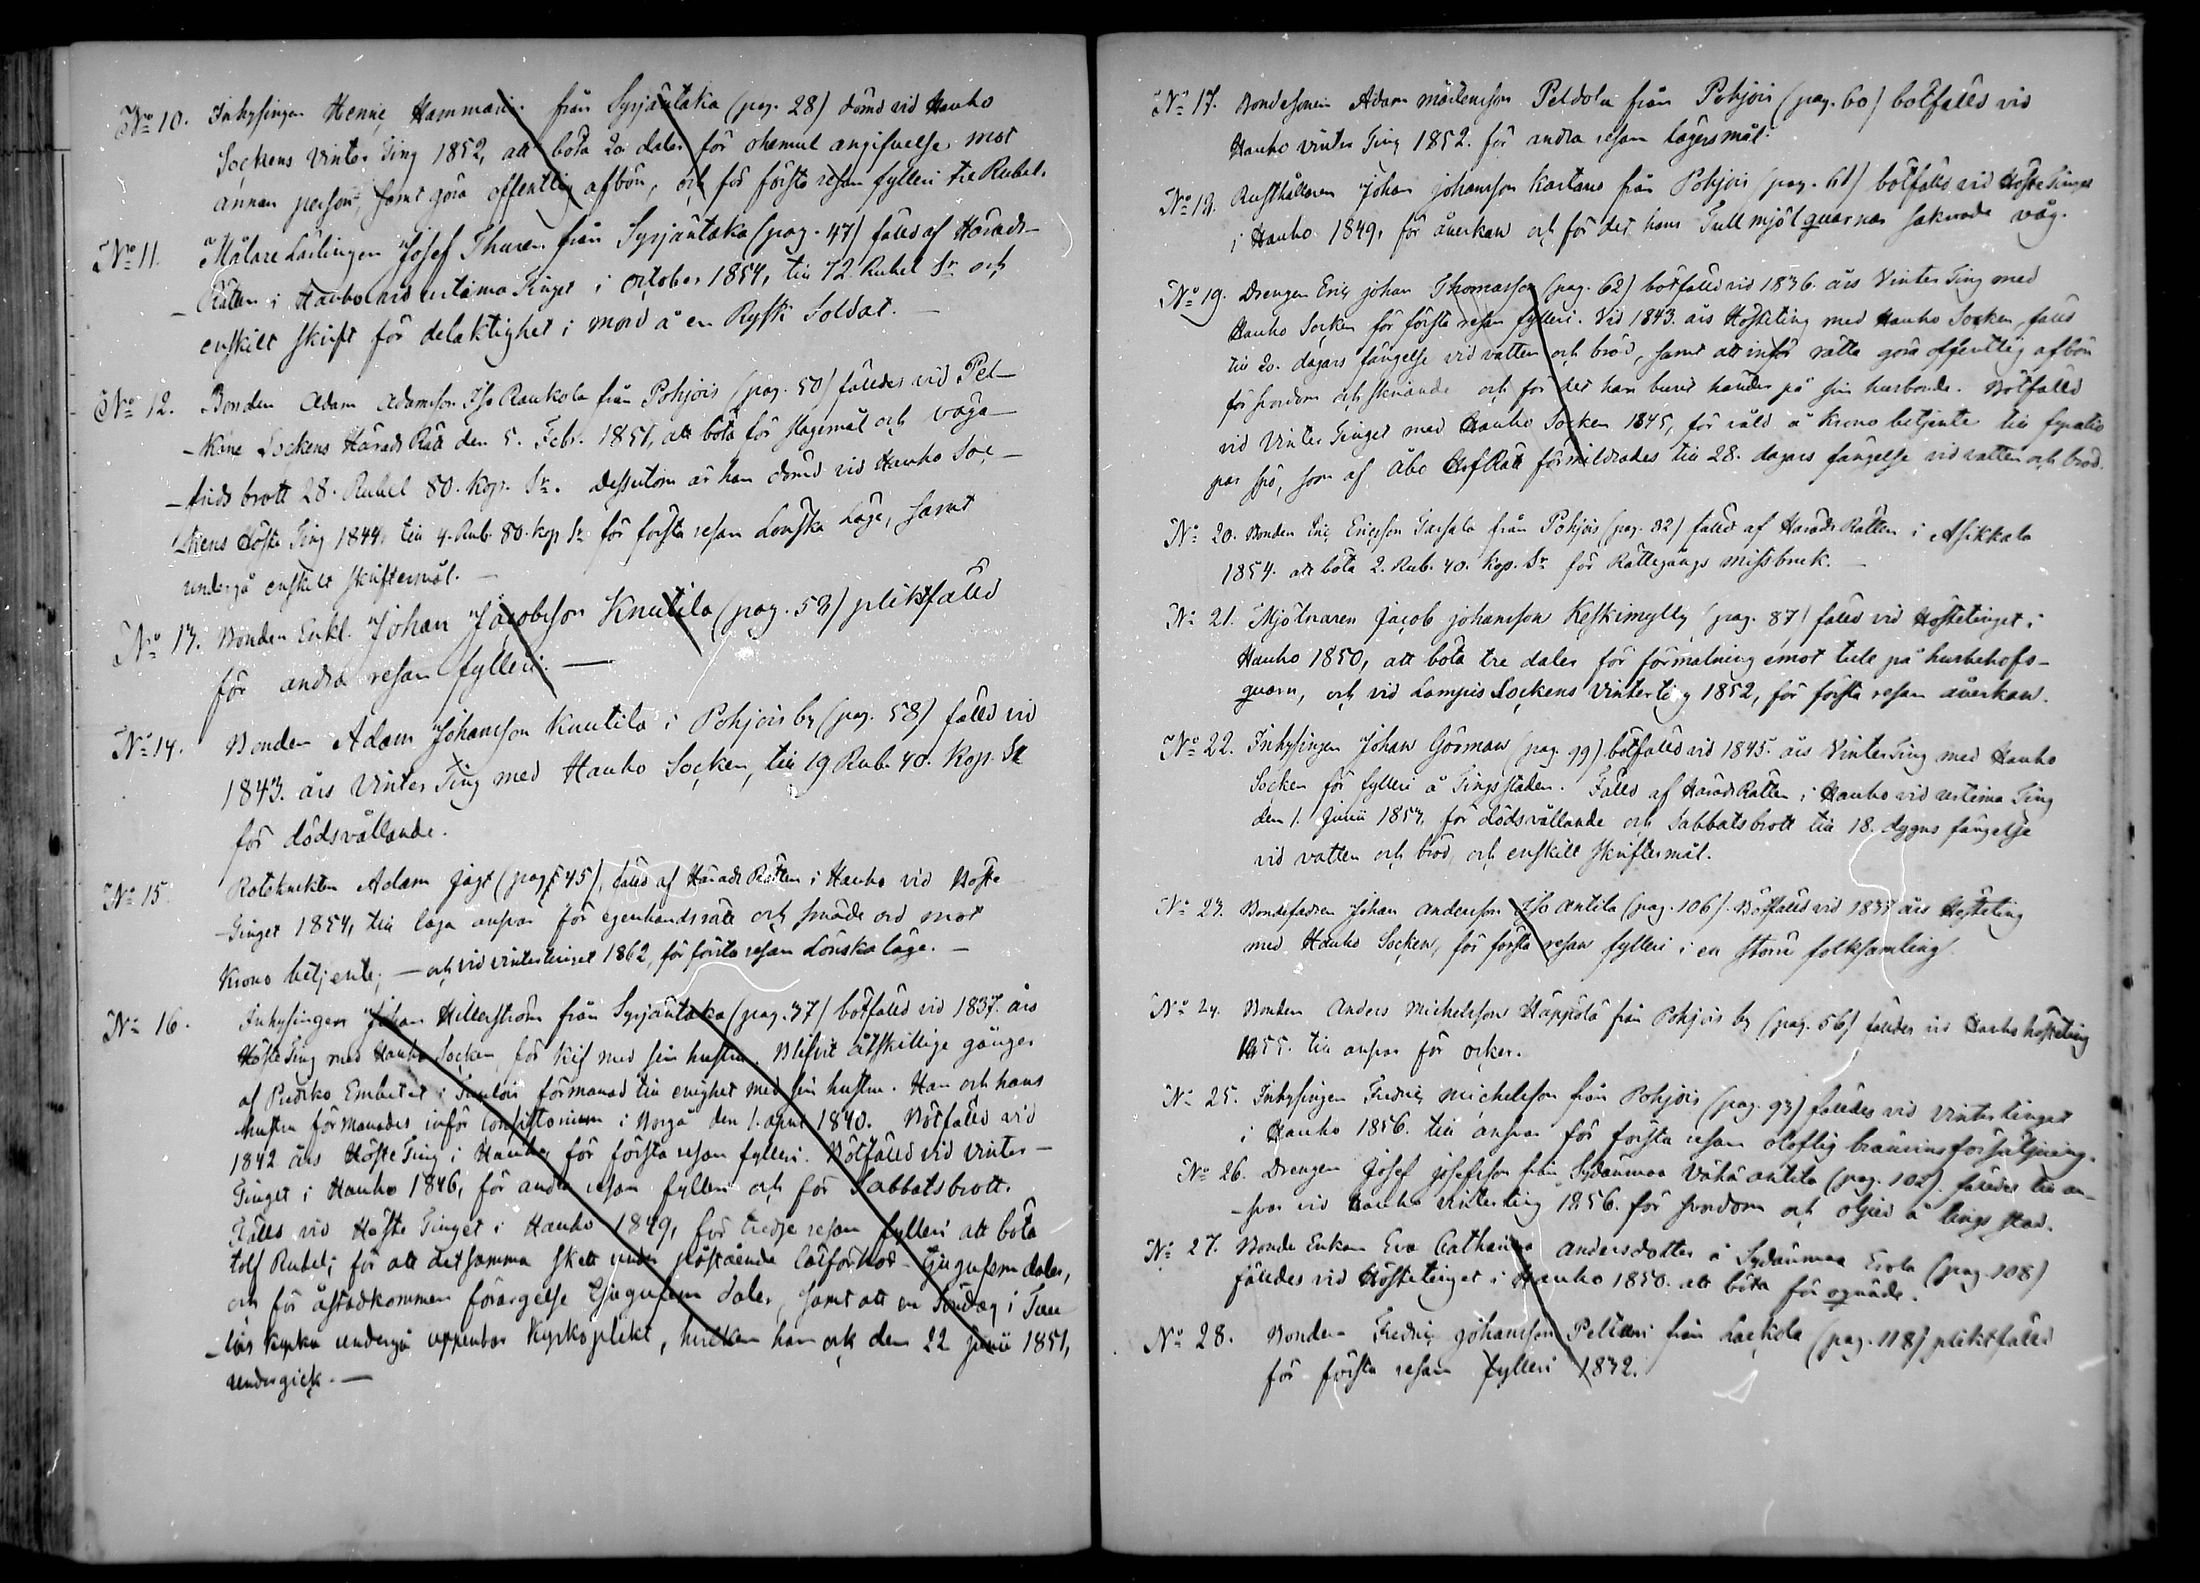 No 10. Inhysingen Henric Hammarin från Syrjäntaka (pag. 28) dömd vid Hauho
Sockens Vinter Ting 1852, att böta 20 daler för ohemul angifvelse mot
annan person, samt göra offentlig afbön, och för första resan fylleri tre Rubel.
No 11. Målare Lärlingen Josef Thuren från Syrjäntaka (pag. 47) fälld af Härads-
-Rätten i Hauho vid urtima Tinget i October 1854, till 72 Rubel Sr och
enskilt skrift för delaktighet i mord å en Rysk Soldat. —
No 12. Bonden Adam Adamsson Iso Raukola från Pohjois (pag. 50) fälldes vid Pel-
-käne Sockens Härads Rätt den 5. Febr. 1851, att böta för slagsmål och väga-
-frids brott 28. Rubel 80. Kop. Sr. Dessutom är han dömd vid Hauho Soc-
-kens Höste Ting 1844, till 4. Rub. 80. kop Sr för första resan Lönska läge, samt
undergå enskilt skriftermål. —
No 13. Bonden Enkl. Johan Jacobsson Knutila (pag. 58) pliktfälld
för andra resan fylleri. —
No 14. Bonden Adam Johansson Knutila i Pohjois by (pag. 58) fälld vid
1843. års Vinter Ting med Hauho Socken, till 19 Rub. 40. Kop. Sr
för dödsvållande.
No 15. Roteknekten Adam Jägt (pag. 45), fälld af Härads Rätten i Hauho vid Höste
-Tinget 1854, till laga ansvar för egenhandsrätt och smäde ord mot
Krono betjente; — och vid vintertinget 1862, för första resan Lönska läge. —
No 16. Inhysingen Johan Hillerström från Syrjäntaka (pag. 37) botfälld vid 1837. års
Höste Ting med Hauho Socken för kif med sin hustru. Blifvit åtskillige gånger
af Prediko Embetet i Tuulois förmanad till enighet med sin hustru. Han och hans
hustru förmanades inför Consistorium i Borgå den 1. April 1840. Botfälld vid
1842 års Höste Ting i Hauho, för första resan fylleri. Botfälld vid Vinter-
Tinget i Hauho 1846, för andra resan fylleri och för Sabbatsbrott.
Fälld vid Höste Tinget i Hauho 1849, för tredje resan fylleri att böta
tolf Rubel; för att detsamma skett under påstående lagförhör Tjugufem daler,
och för åstadkommen förargelse Tjugufem daler, samt att en Söndag i Tuu
-lois kyrka undergå uppenbar Kyrkoplikt, hvilken han ock den 22 Junii 1851,
undergick. —
No 17. Bondesonen Adam Mårtensson Peldola från Pohjois (pag. 60) botfälld vid
Hauho vinter Ting 1852. för andra resan lägersmål.
No 18. Rusthållaren Johan Johansson Kartano från Pohjois (pag. 61) botfälld vid Höste Tinget
i Hauho 1849, för åverkan och för det hans Tullmjölquarnar saknade våg.
No 19. Drengen Eric Johan Thomasson (pag. 62) botfälld vid 1836. års Vinter Ting med
Hauho Socken för första resan fylleri. Vid 1843. års Hösteting med Hauho Socken, fälld
till 20. dagars fängelse vid vatten och bröd, samt att inför rätta göra offentlig afbön
för svordom och skriande och för det han burit händer på sin husbonde. Botfälld
vid Vinter Tinget med Hauho Socken 1845, för våld å Krono betjente till fyratio
par spö, som af Åbo Hof Rätt förmildrades till 28. dagars fängelse vid vatten och bröd.
No 20. Bonden Eric Ericsson Tarsala från Pohjois (pag. 82) fälld af Härads Rätten i Asikkala
1854. att böta 2. Rub. 40. Kop. Sr för Rättegångs missbruk. —
No 21. Mjölnaren Jacob Johansson Keskimylly (pag. 87) fälld vid Höstetinget i
Hauho 1850, att böta tre daler för förmalning emot tull på husbehofs-
quarn, och vid Lampis Sockens Vinterting 1852, för första resan åverkan.
No 22. Inhysingen Johan Görman (pag. 99) botfälld vid 1845. års Vinter Ting med Hauho
Socken för fylleri å Tingsstaden. Fälld af Härads Rätten i Hauho vid urtima Ting
den 1. Junii 1853, för dödsvållande och Sabbatsbrott till 18. dygns fängelse
vid vatten och bröd, och enskilt skriftermål.
No 23. Bondefadren Johan Andersson Iso Antila (pag. 106). Botfälld vid 1837 års Hösteting
med Hauho Socken, för första resan fylleri i en större folksamling.
No 24. Bonden Anders Michelsson Häppölä från Pohjois by (pag. 56) fälldes vid Hauho hösteting
1855. till ansvar för ocker.
No 25. Inhysingen Fredric Michelsson från Pohjois (pag. 93) fälldes vid Vintertinget
i Hauho 1856. till ansvar för första resan oloflig bränvinsförsäljning.
No 26. Drengen Josef Josefsson från Sydänmaa Vähä Antila (pag. 102). fälldes till an-
-svar vid Hauho vinterting 1856. för svordom och oljud å tings stad.
No 27. Bonde Enkan Eva Catharina Andersdotter å Sydänmaa Erola (pag. 108)
fälldes vid Höstetinget i Hauho 1850. att böta för oqväde.
No 28. Bonden Fredric Johansson Peltteri från Lackola (pag. 118) pliktfälld
för första resan fylleri 1832.